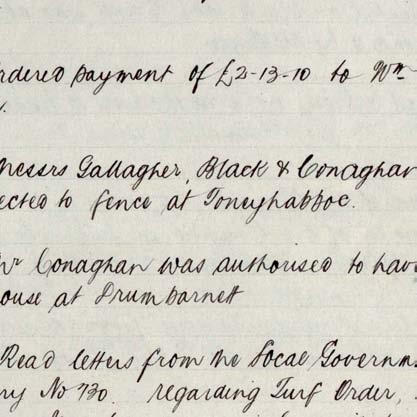 rdered payment of £2-13-10 to Wm
Messrs Gallagher, Black & Conaghan
ected to fence at Toneyhabboc.
Mr Conaghan was authorised to hav
ouse at Drumbarnett
Read letters from the Local Governm
ry No 730. regarding Turf Order,